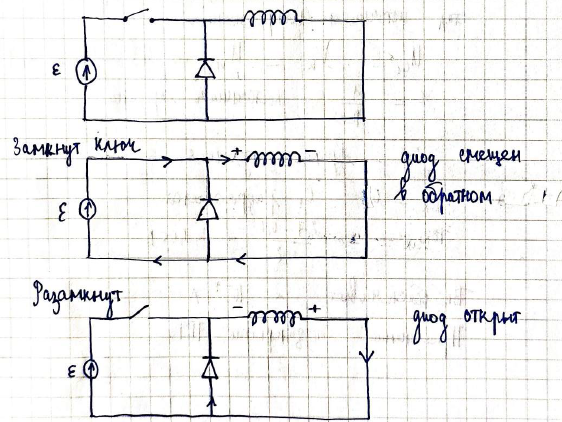 ε
Замкнут ключ
+ -
диод смещен
в обратном
ε
Разамкнут
- +
диод открыт
ε